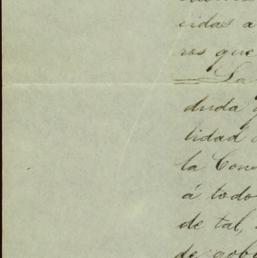 cidas a
ros que
La
duda
lidad
la Con
á todo
de tal,
de gob